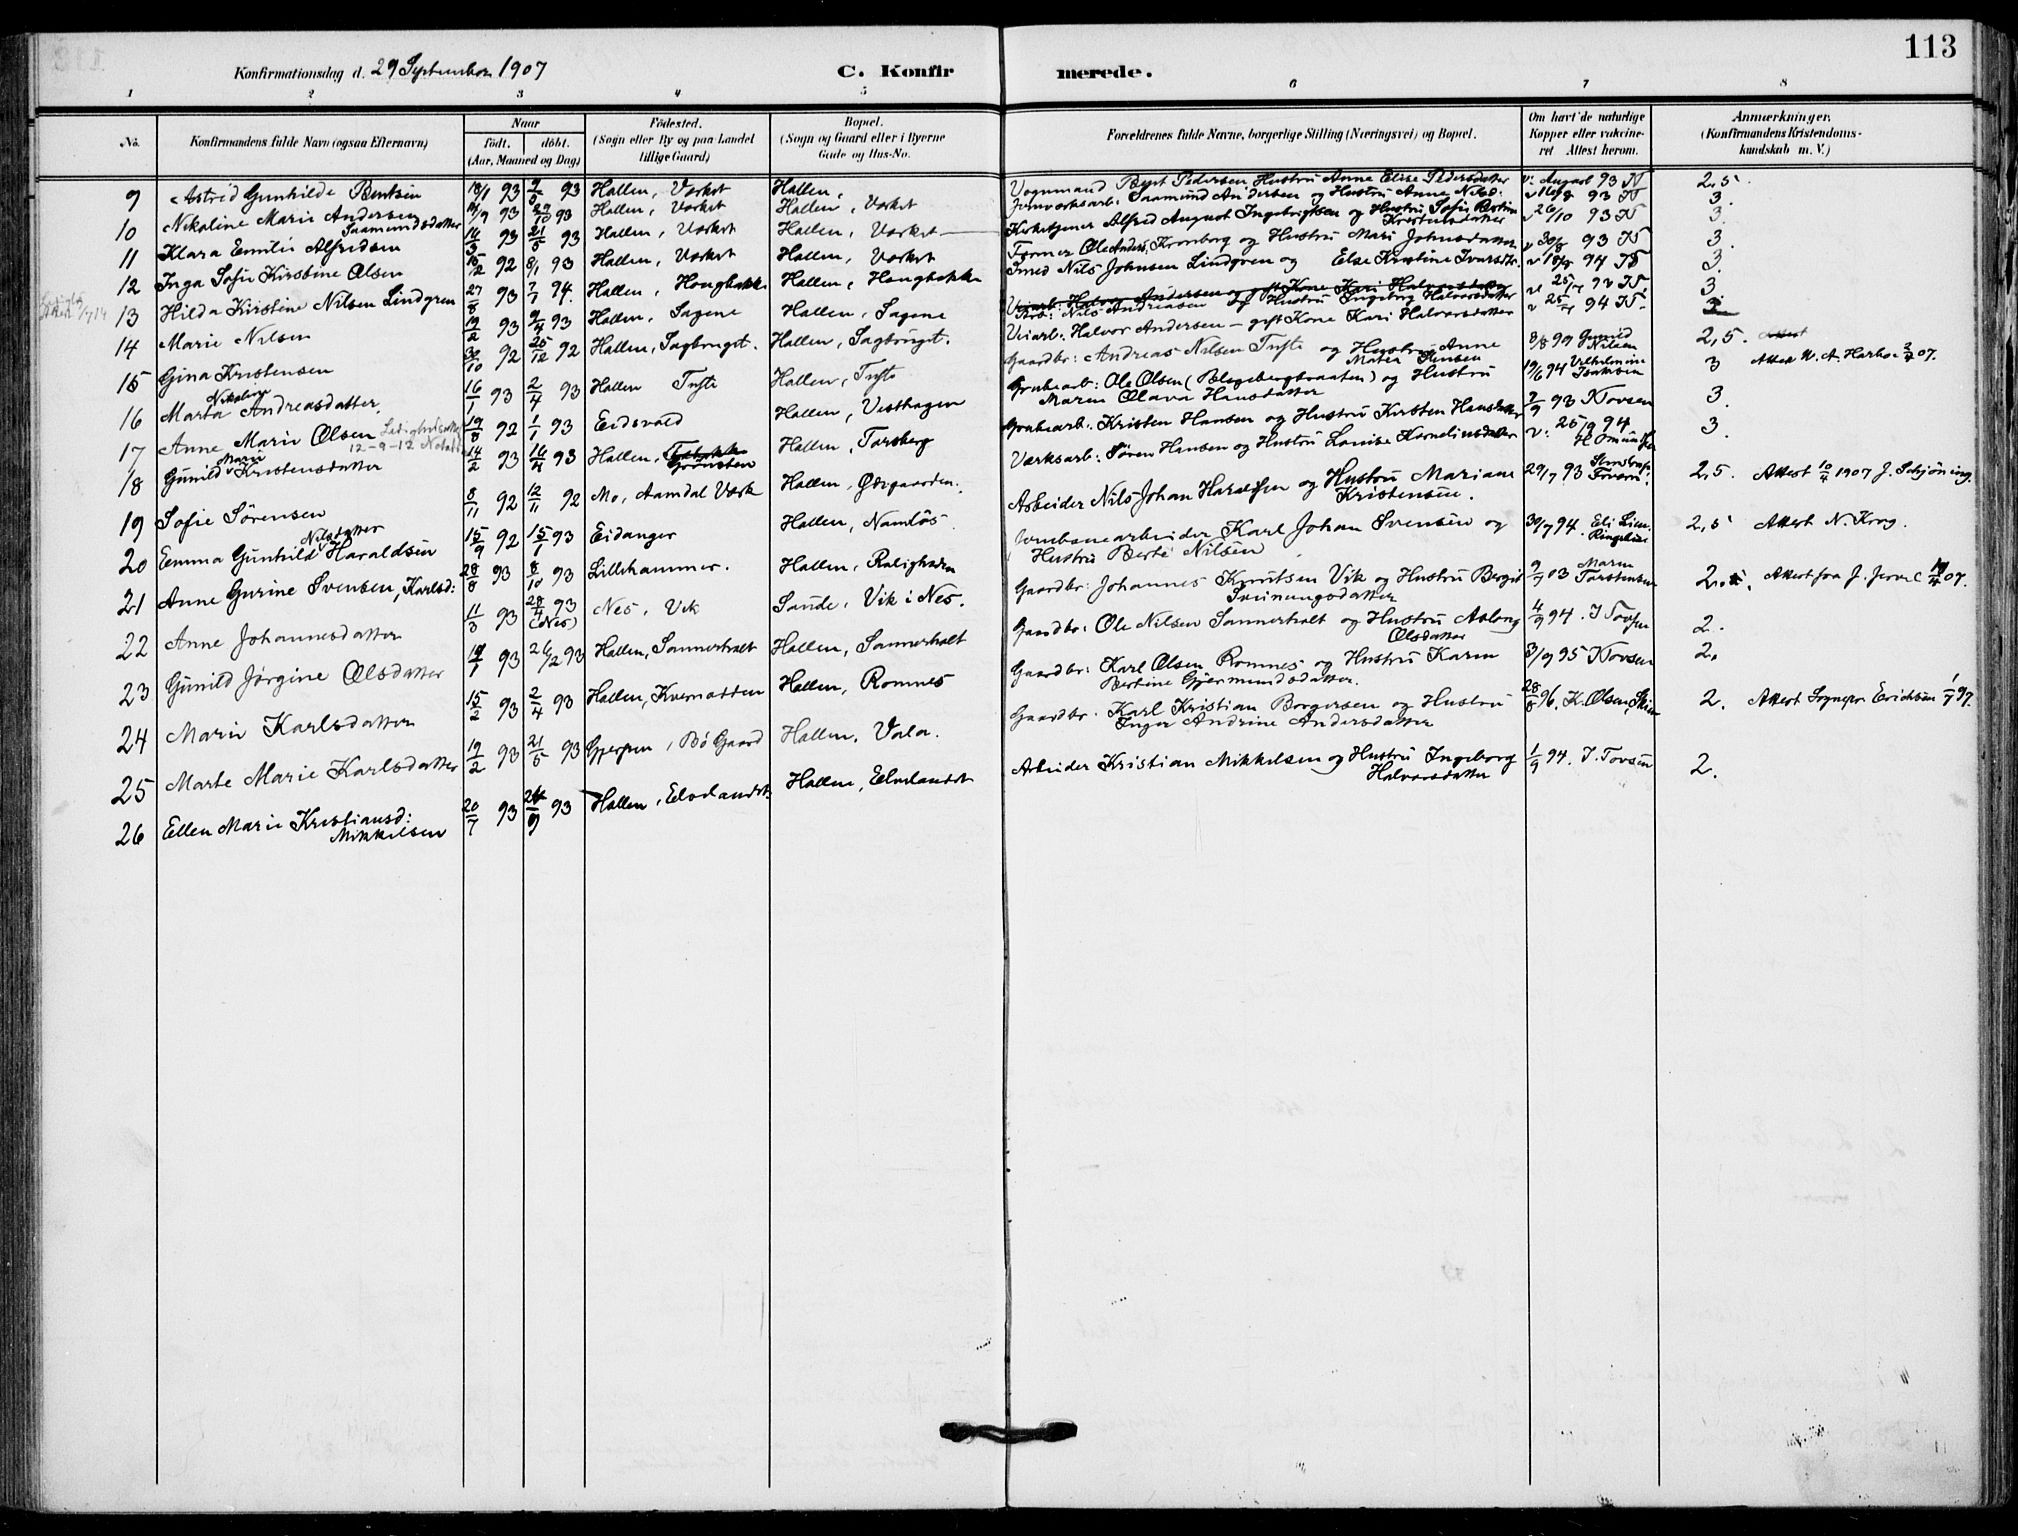 113
Konfirmationsdag d. 29 September 1907
C. Konfirmerede.
1 2 3 4 5 6 7 8
No.
Konfirmandens fulde Navn (ogsaa Efternavn)
Naar
født. døbt.
(Aar, Maaned og Dag)
Fødested.
(Sogn eller By og paa Landet
tillige Gaard)
Bopæl.
(Sogn og Gaard eller i Byerne
Gade og Hus-No.
Forældrenes fulde Navne, borgerlige Stilling (Næringsvei) og Bopæl.
Om havt de naturlige
Kopper eller vakcine-
ret Attest herom.
Anmærkninger.
(Konfirmandens Kristendoms-
kundskab m. V.)
9 Astrid Gunhilde Bentsen 18/1 93 93 Hollen, Værket Hollen, Vognmand Bent Pedersen Hustru Anne Elise Pedersdatter v. August 93 2,5
10 Nikoline Marie Andersen Saamundsdatter /9 93 29/10 93 Hollen, Værket Hollen, Værket Jernværksarb. Saamund Andersen og Hustru Anne Nilsd. 93 3.
11 Klara Emilie Alfredsen 16/3 93 21/5 93 Hollen, Værket Hollen, Værket Kirketjener Alfred August Ingebrigtsen og Hustru Sofie Kristensdatter v 26/10 93 3.
12 Inga Sofie Kirstine Olsen 15/12 92 8/1 93 Hollen, Værket Hollen, Værket Former Ole Anders. Kronborg og Hustru Mari Johnsdatter v 30/8 93 3.
13 Hilda Kirstine Nilsen Lindgren 27/8 93 7/1 94. Hollen, Hougbakke Hollen, Hougbakke Smed Nils Johnsen Lindgren og Else Kirstine Ivarsdtr. 94 3.
14 Marie Nilsen 19/2 93 9/4 93 Hollen, Sagene Hollen, Sagene Arb: Nils Andreasen og Hustru Ingeborg Halvorsdatter v 25/ 93 3
15 Gina Kristensen 30/10 92 26/12 92 Hollen, Sagbruget. Hollen, Sagbruget. Veiarb: Halvor Andersen – gift Kone Kari Halvorsdatter v 25/ 94
16 Marta Nikoline Andreasdatter, 16/1 93 2/4 93 Hollen Tufte Hollen, Tufte Gaardbr: Andreas Nilsen Tufte og Hustru Anne Matea Jensen 8/8 99 Gunild Nilsen 2,5.
17 Anne Marie Olsen 12-9-12 19/8 92 1/1 93 Eidsvold Hollen, Vesthagen Grubearb: Ole Olsen og Hustru Maren Olava Hansdatter 19/6 94 Vilhelmine Isaksen 3 Attest W. A. Harbo 2/7 07.
18 Gunild Marie Kristensdatter 14/2 93 16/4 93 Hollen, Hollen, Torsberg Grubearb. Kristen Hansen og Hustru Kirsten Hansdatter 2/9 93 K Tovsen 3.
19 Sofie Sørensen 8/11 92 12/11 92 Mo, Aamdal Værk Hollen, Øvregaarden. Værksarb: Søren Hansen og Hustru Louise Kornelinsdatter v: 25/9 94 3.
20 Emma Gunhild Nilsdatter Haraldsen 15/9 92 15/1 93 Eidanger Hollen, Namløs. Arbeider Nils Johan Haraldsen og Hustru Mariane Kristensen. 29/7 93 2,5 Attest 10/4 1907 J. Schjøning.
21 Anne Gurine Svensen, Karlsd: 28/8 93 8/10 93 Lillehammer. Hollen, Jernbanearbeider Karl Johan Svensen og Hustru Berte Nilsen 30/7 94. Eli Lien. Ringelien 2,5 Attest N. Krog.
22 Anne Johannesdatter 11/3 93 28/4 93 (Nes) Nes, Vik Sande, Vik i Nes. Gaardbr: Johannes Knutsen Vik og Hustru Bergit Sveinungsdatter 9/7 03 Maren Torstensen 2. Attest fra J. 07.
23 Gunild Jørgine Olsdatter 19/1 93 26/2 93 Hollen, Sannerholt Hollen, Sannerholt Gaardbr. Ole Nilsen Sannerholt og Hustru Aslaug Olsdatter 4/9 94. J Tovsen 2.
24 Marie Karlsdatter 15/2 93 2/4 93 Hollen, Kvernodden Hollen, Romnes Gaardbr: Karl Olsen Romnes og Hustru Karen Bertine Gjermundsdatter. 3/9 95 K Tovsen 2.
25 Marte Marie Karlsdatter 19/2 93 21/5 93 Gjerpen, Bö Gaard Hollen, Vala. Gaardbr. Karl Kristian Borgersen og Hustru Inger Andrine Andersdatter 28/8 96. K. Olsen, Skien 2. Attest Sognepr. Erichsen 1/7 07.
26 Ellen Marie Kristiansd: Mikkelsen 20/7 93 24/9 93 Hollen, Eilvlandet Hollen, Eilvlandet Arbeider Kristian Mikkelsen og Hustru Ingeborg Halvorsdatter 1/9 94. J. Tovsen 2.